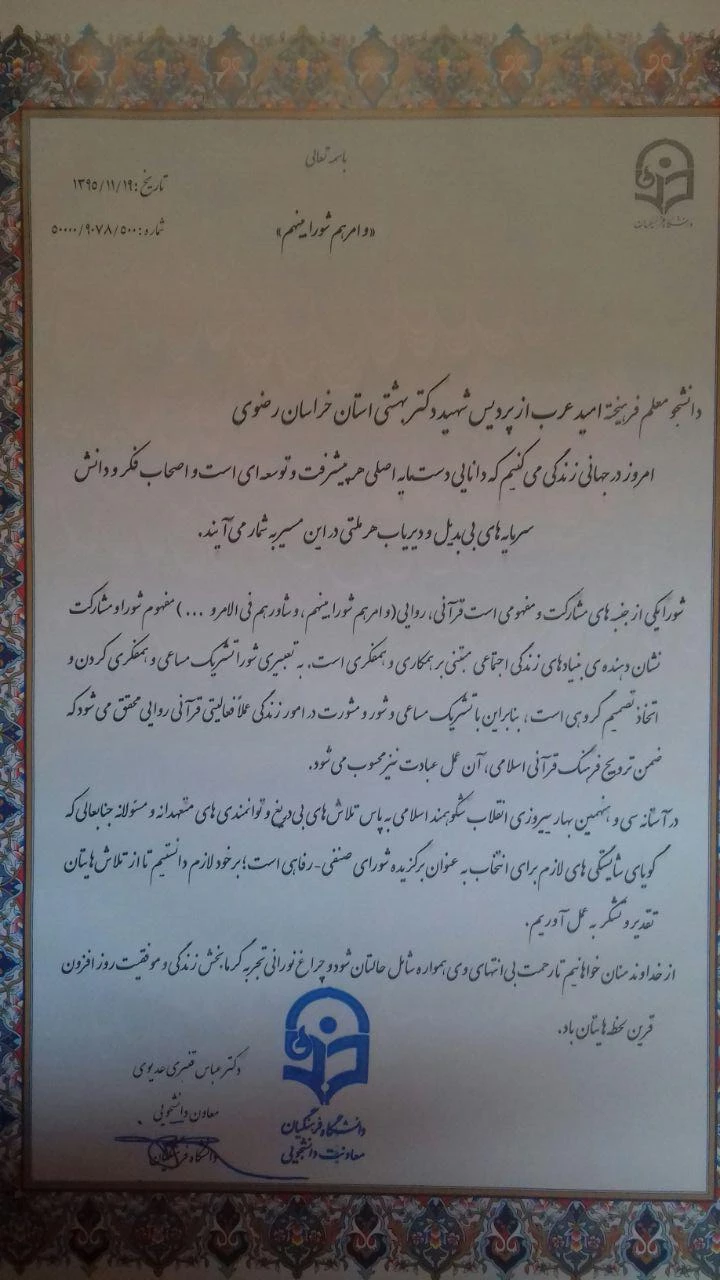 باسمه تعالی
تاریخ: ۱۳۹۵/۱۱/۱۹
شماره: ۵۰۰۰۰/۹۰۷۸/۵۰۰
«و امرهم شورا بینهم»
دانشگاه فرهنگیان
دانشجو معلم فرهیخته امید عرب از پردیس شهید دکتر بهشتی استان خراسان رضوی
امروز در جهانی زندگی می کنیم که دانایی دست مایه اصلی هر پیشرفت و توسعه ای است و اصحاب فکر و دانش
سرمایه های بی بدیل و دیریاب هر ملتی در این مسیر به شمار می آیند.
شورا یکی از جنبه های مشارکت و مفهومی است قرآنی، روایی (و امرهم شورا بینهم، و شاورهم فی الامر و ...) مفهوم شورا و مشارکت
نشان دهنده ی بنیادهای زندگی اجتماعی مبتنی بر همکاری و همفکری است. به تعبیری شورا تشریک مساعی و همفکری کردن و
اتخاذ تصمیم گروهی است، بنابراین با تشریک مساعی و شور و مشورت در امور زندگی عملاً فعالیتی قرآنی روایی محقق می شود که
ضمن ترویج فرهنگ قرآنی اسلامی، آن عمل عبادت نیز محسوب می شود.
در آستانه سی و هشتمین بهار پیروزی انقلاب شکوهمند اسلامی به پاس تلاش های بی دریغ و توانمندی های متعهدانه و مسئولانه جنابعالی که
گویای شایستگی های لازم برای انتخاب به عنوان برگزیده شورای صنفی-رفاهی است؛ بر خود لازم دانستیم تا از تلاش هایتان
تقدیر و تشکر به عمل آوریم.
از خداوند منان خواهانیم تا رحمت بی انتهای وی همواره شامل حالتان شود و چراغ نورانی تجربه گرمابخش زندگی و موفقیت روز افزون
قرین لحظه هایتان باد.
دکتر عباس قنبری عدیوی
معاون دانشجویی
دانشگاه فرهنگیان
دانشگاه فرهنگیان
معاونت دانشجویی